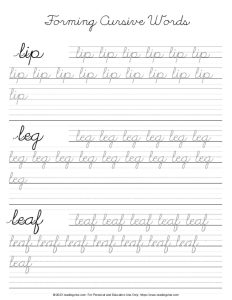 Forming Cursive Words
lip lip lip lip lip lip lip
lip lip lip lip lip lip lip lip lip
lip
leg leg leg leg leg leg leg
leg leg leg leg leg leg leg leg
leg
leaf leaf leaf leaf leaf leaf
leaf leaf leaf leaf leaf leaf leaf
leaf